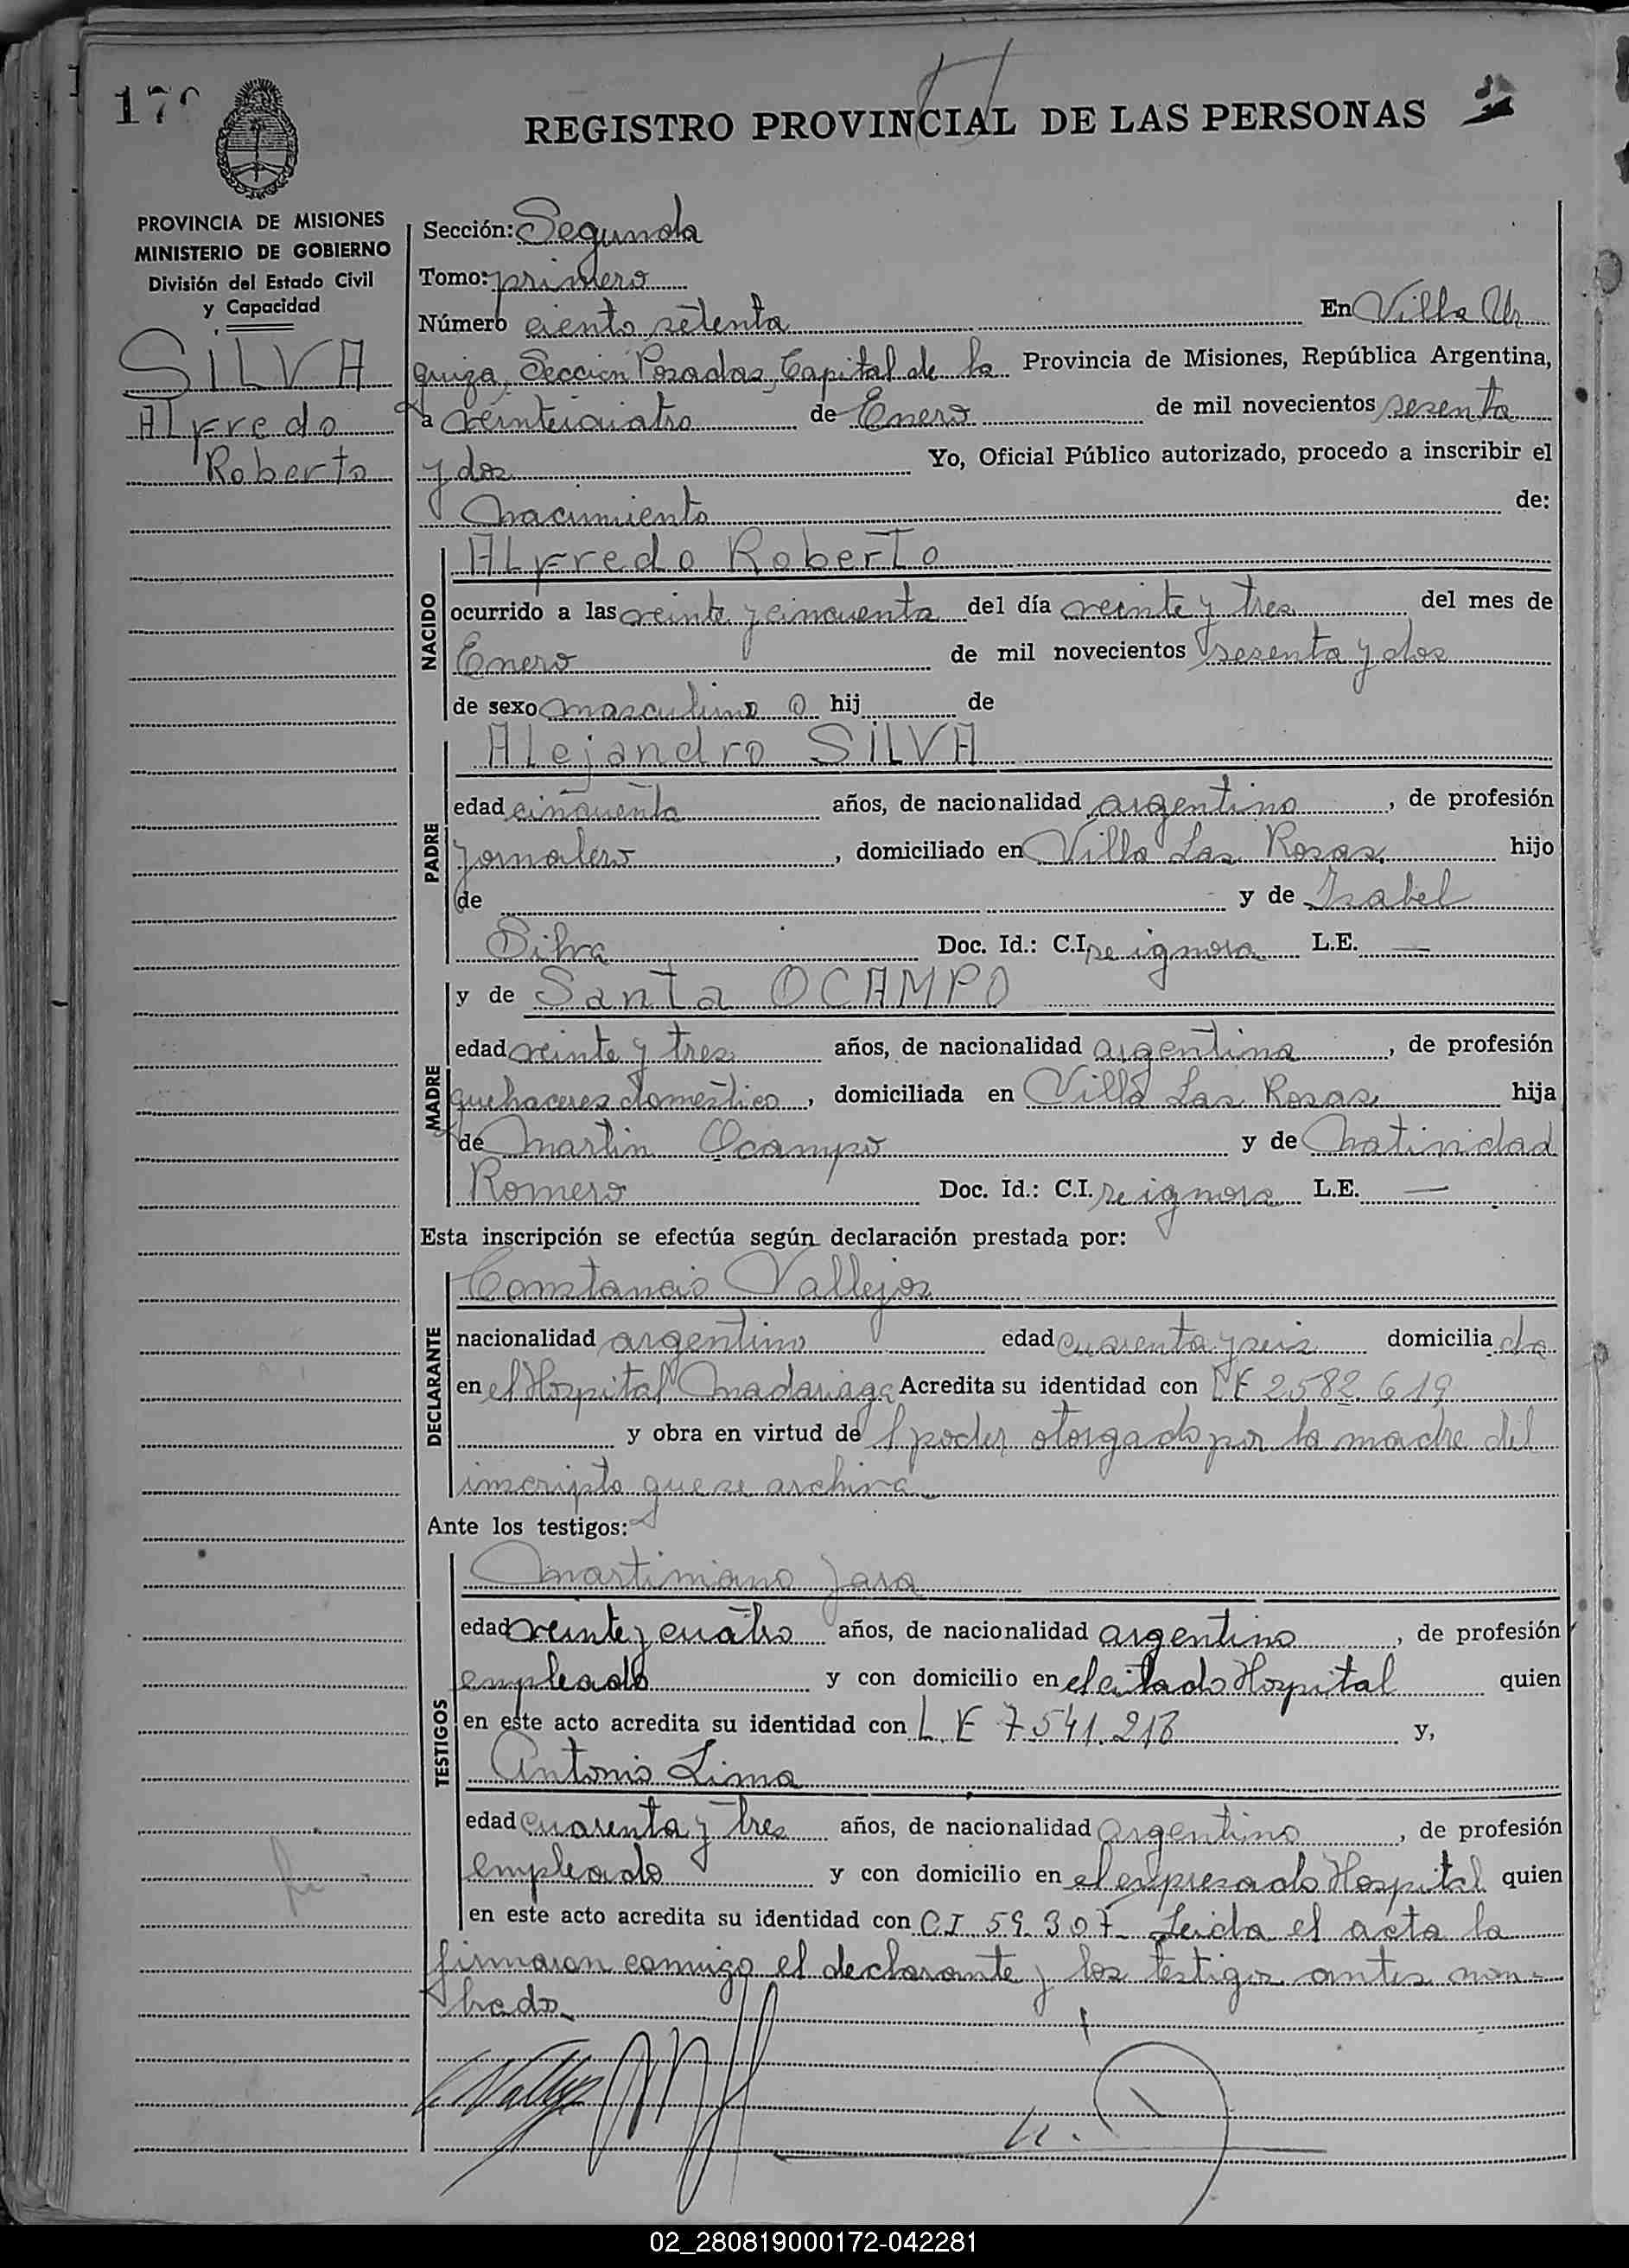 170
REGISTRO PROVINCIAL DE LAS PERSONAS
PROVINCIA DE MISIONES
MINISTERIO DE GOBIERNO
División del Estado Civil
y Capacidad
SILVA
Alfredo
Roberto
Sección: Segunda
Tomo: primero
Número ciento setenta En Villa Ur
quiza, Sección Posadas, Capital de la Provincia de Misiones, República Argentina,
a veinticuatro de Enero de mil novecientos sesenta
y dos Yo, Oficial Público autorizado, procedo a inscribir el
Nacimiento de:
NACIDO
Alfredo Roberto
ocurrido a las veinte y cincuenta del día veinte y tres del mes de
Enero de mil novecientos sesenta y dos
de sexo masculino O hij de
PADRE
Alejandro SILVA
edad cincuenta años, de nacionalidad argentino, de profesión
jornalero, domiciliado en Villa Las Rosas. hijo
de y de Isabel
Silva Doc. Id.: C.I. se ignora L.E. —
MADRE
y de Santa OCAMPO
edad veinte y tres años, de nacionalidad argentina, de profesión
quehaceres doméstico, domiciliada en Villa Las Rosas hija
de Martin Ocampo y de Natividad
Romero Doc. Id.: C.I. se ignora L.E. —
Esta inscripción se efectúa según declaración prestada por:
DECLARANTE
Constancio Vallejos
nacionalidad argentino edad cuarenta y seis domicilia do
en el Hospital Madariaga Acredita su identidad con LE 2582.619
y obra en virtud de l poder otorgado por la madre del
inscripto que se archiva
Ante los testigos:
TESTIGOS
Martimiano Jara
edad veinte y cuatro años, de nacionalidad argentino, de profesión
empleado y con domicilio en el citado Hospital quien
en este acto acredita su identidad con L.E 7.541.218 y,
Antonio Lima
edad cuarenta y tres años, de nacionalidad argentino, de profesión
empleado y con domicilio en el expresado Hospital quien
en este acto acredita su identidad con C.I 59.307 Leida el acta la
firmaron conmigo el declarante y los testigos antes nom-
brado
C Vallejos
02_280819000172-042281